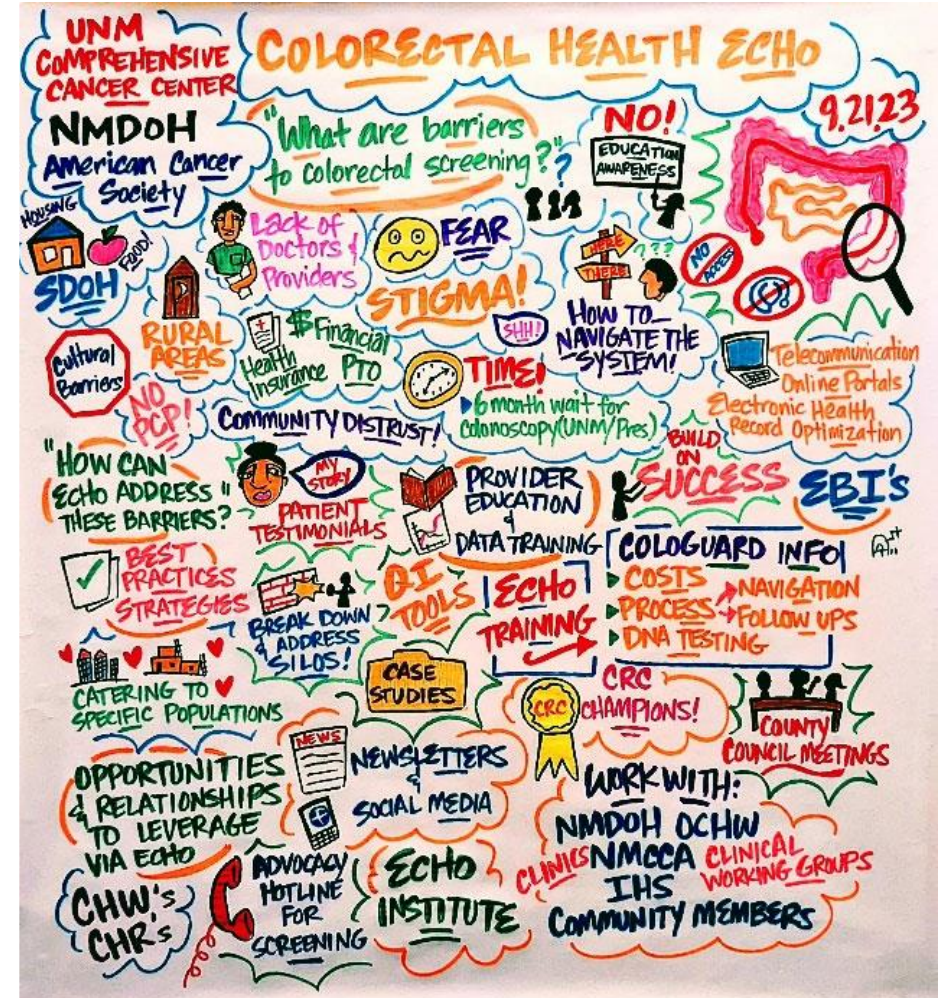 UNM
COMPREHENSIVE
CANCER CENTER
COLORECTAL HEALTH ECHO
9.21.23
NMDOH
American Cancer
Society
"What are barriers
to colorectal screening?"
?
NO!
EDUCATION
AWARENESS
HOUSING
FOOD!
SDOH
Lack of
Doctors &
Providers
FEAR
HERE
THERE
???
NO
ACCESS
RURAL
AREAS
STIGMA!
SHH!
HOW TO
NAVIGATE THE
SYSTEM!
Cultural
Barriers
$ Financial
Health
Insurance PTO
TIME!
6 month wait for
colonoscopy (UNM/Pres)
Telecommunication
Online Portals
Electronic Health
Record Optimization
NO
PCP!
COMMUNITY DISTRUST!
"HOW CAN
ECHO ADDRESS
THESE BARRIERS?"
MY
STORY
PATIENT
TESTIMONIALS
PROVIDER
EDUCATION
&
DATA TRAINING
BUILD
ON
SUCCESS
EBI's
BEST
PRACTICES
STRATEGIES
BREAK DOWN
& ADDRESS
SILOS!
QI
TOOLS
ECHO
TRAINING
COLOGUARD INFO
COSTS
PROCESS
NAVIGATION
FOLLOW UPS
DNA TESTING
CATERING TO
SPECIFIC POPULATIONS
CASE
STUDIES
CRC
CRC
CHAMPIONS!
COUNTY
COUNCIL MEETINGS
OPPORTUNITIES
& RELATIONSHIPS
TO LEVERAGE
VIA ECHO
NEWS
NEWSLETTERS
&
SOCIAL MEDIA
WORK WITH:
NMDOH OCHW
CLINICS NMCCA CLINICAL
WORKING GROUPS
IHS
COMMUNITY MEMBERS
CHW's
CHR's
ADVOCACY
HOTLINE
FOR
SCREENING
ECHO
INSTITUTE